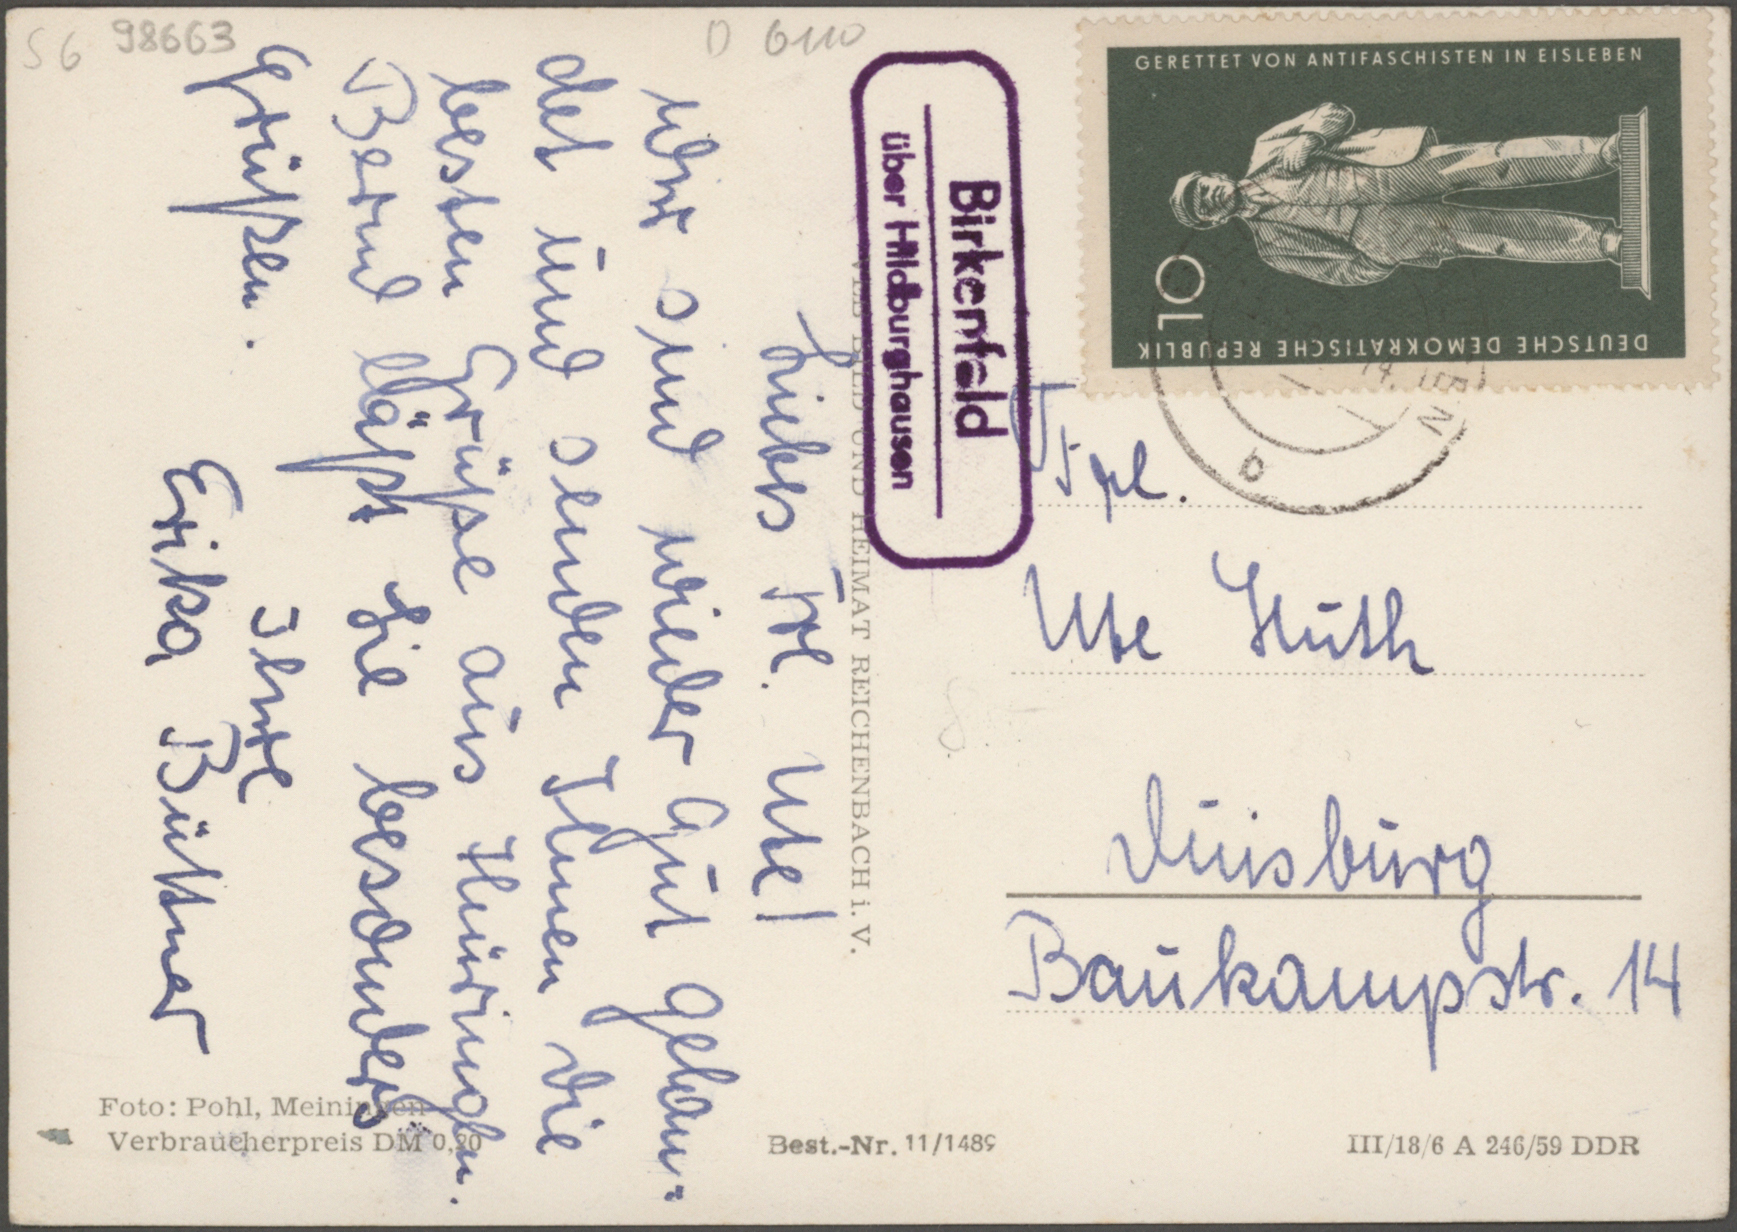 S6 98663
D 6110
GERETTET VON ANTIFASCHISTEN IN EISLEBEN
10
DEUTSCHE DEMOKRATISCHE REPUBLIK
Birkenfeld
über Hildburghausen
VEB BILD UND HEIMAT REICHENBACH i. V.
Liebes Frl. Ute!
Wir sind wieder gut gelan-
det und senden Ihnen die
besten Grüße aus Thüringen.
Bernd läßt Sie besonders
grüßen.
Ihre
Erika Büttner
Frl.
Ute Huth
Duisburg
Baukampstr. 14
Foto: Pohl, Meiningen
Verbraucherpreis DM 0,20
Best.-Nr. 11/1489
III/18/6 A 246/59 DDR